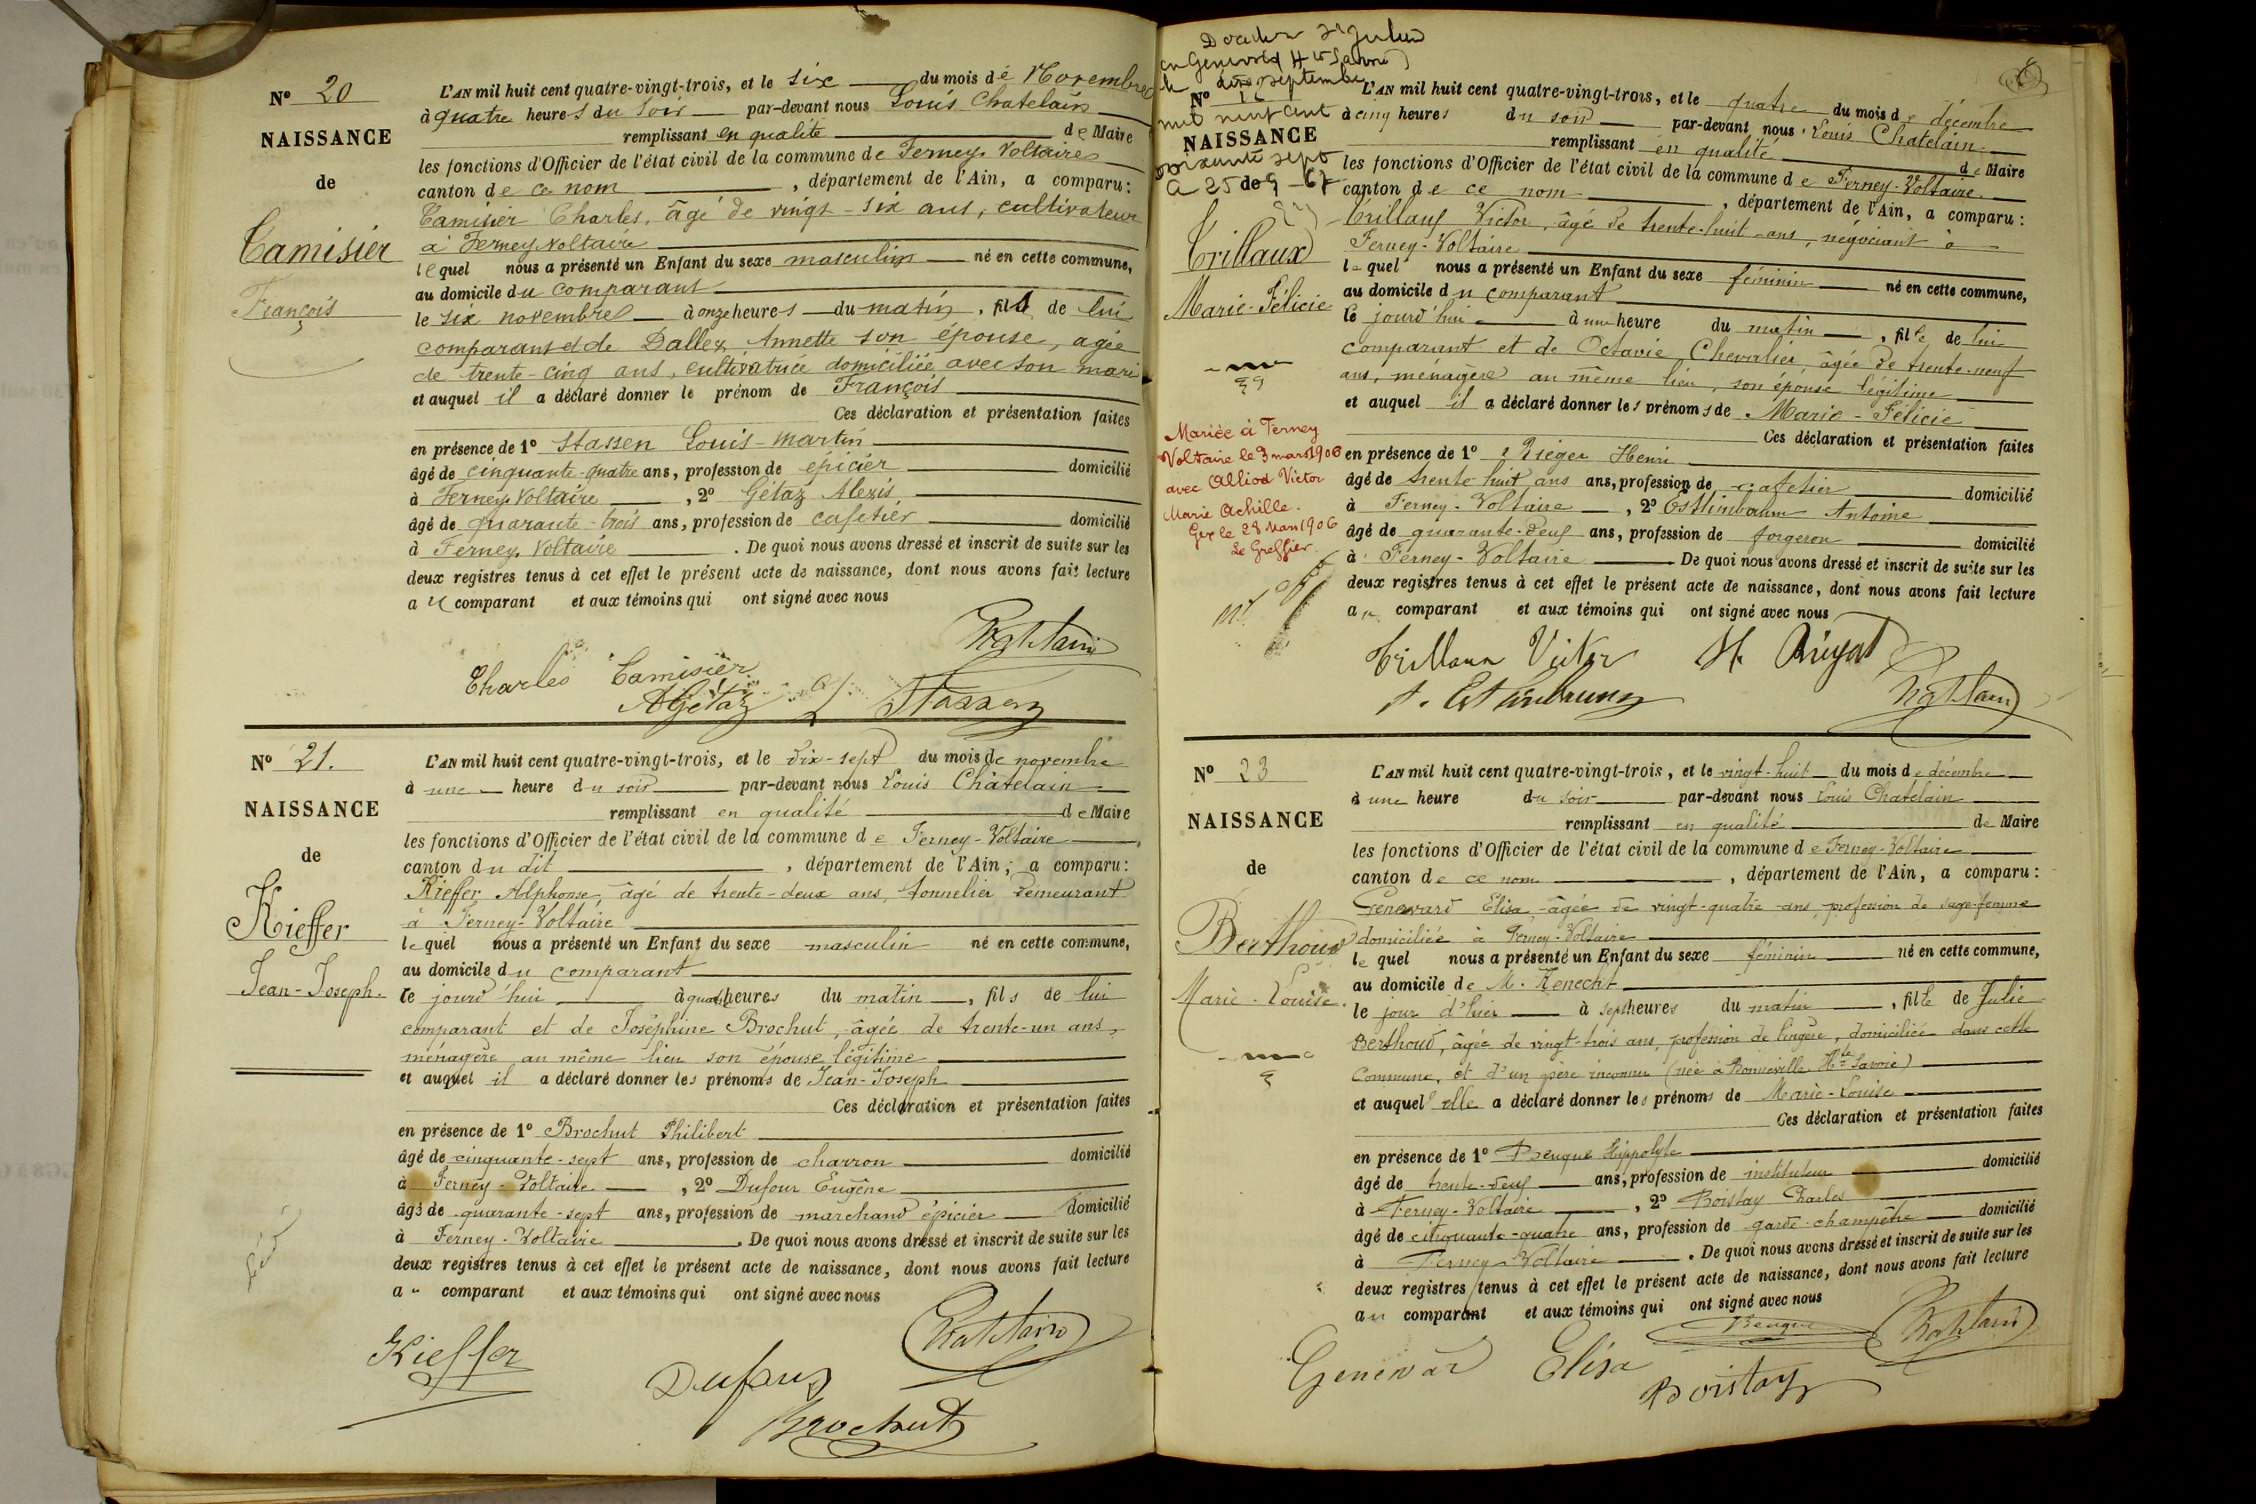 N° 20
NAISSANCE
de
Camisier
François
L'AN mil huit cent quatre-vingt-trois, et le six du mois de Novembre
à quatre heures du soir par-devant nous Louis Chatelain
remplissant en qualité de Maire
les fonctions d'Officier de l'état civil de la commune de Ferney-Voltaire
canton de ce nom , département de l'Ain, a comparu :
Camisier Charles, âgé de vingt-six ans, cultivateur
à Ferney Voltaire
lequel nous a présenté un Enfant du sexe masculin né en cette commune,
au domicile du comparant
le six novembre à onze heures du matin, fils de lui
comparant et de Dallex Annette son épouse, agée
de trente-cinq ans, cultivatrice domiciliée avec son mari
et auquel il a déclaré donner le prénom de François
Ces déclaration et présentation faites
en présence de 1° Stassen Louis-Martin
âgé de cinquante-quatre ans, profession de épicier domicilié
à Ferney Voltaire , 2° Gétaz Alexis
âgé de quarante-trois ans, profession de cafetier domicilié
à Ferney Voltaire . De quoi nous avons dressé et inscrit de suite sur les
deux registres tenus à cet effet le présent acte de naissance, dont nous avons fait lecture
au comparant et aux témoins qui ont signé avec nous
Chatelain
Charles Camisier
A Gétaz Stassen
N° 21.
NAISSANCE
de
Kieffer
Jean-Joseph.
L'AN mil huit cent quatre-vingt-trois, et le dix-sept du mois de novembre
à une heure du soir par-devant nous Louis Châtelain
remplissant en qualité de Maire
les fonctions d'Officier de l'état civil de la commune de Ferney-Voltaire
canton du dit , département de l'Ain, a comparu :
Kieffer Alphonse, âgé de trente-deux ans, tonnelier demeurant
à Ferney-Voltaire
lequel nous a présenté un Enfant du sexe masculin né en cette commune,
au domicile du comparant
le jourd'hui à quatre heures du matin, fils de lui
comparant et de Joséphine Brochut, âgée de trente-un ans,
ménagère au même lieu son épouse légitime
et auquel il a déclaré donner les prénoms de Jean-Joseph
Ces déclaration et présentation faites
en présence de 1° Brochut Philibert
âgé de cinquante-sept ans, profession de charron domicilié
à Ferney-Voltaire , 2° Dufour Eugène
âgé de quarante-sept ans, profession de marchand épicier domicilié
à Ferney-Voltaire . De quoi nous avons dressé et inscrit de suite sur les
deux registres tenus à cet effet le présent acte de naissance, dont nous avons fait lecture
au comparant et aux témoins qui ont signé avec nous
Chatelain
Kieffer
Dufour
Brochut
en Genevois Hte Savoie
septembre
N°
mil neuf cent
NAISSANCE
soixante sept
de
Trillaux
Marie-Félicie
Mariée à Ferney
Voltaire le 3 mars 1906
avec Alliod Victor
Marie Achille.
Gex le 28 Mars 1906
Le Greffier
L'AN mil huit cent quatre-vingt-trois, et le quatre du mois de décembre
à cinq heures du soir par-devant nous Louis Chatelain
remplissant en qualité de Maire
les fonctions d'Officier de l'état civil de la commune de Ferney-Voltaire
canton de ce nom , département de l'Ain, a comparu :
Trillaux Victor, âgé de trente-huit ans, négociant à
Ferney-Voltaire
lequel nous a présenté un Enfant du sexe féminin né en cette commune,
au domicile du comparant
le jourd'hui à une heure du matin, fille de lui
comparant et de Octavie Chevalier, âgée de trente-neuf
ans, ménagère au même lieu, son épouse légitime
et auquel il a déclaré donner les prénoms de Marie-Félicie
Ces déclaration et présentation faites
en présence de 1° Henri
âgé de trente huit ans ans, profession de cafetier domicilié
à Ferney-Voltaire , 2° Antoine
âgé de quarante-deux ans, profession de forgeron domicilié
à Ferney-Voltaire De quoi nous avons dressé et inscrit de suite sur les
deux registres tenus à cet effet le présent acte de naissance, dont nous avons fait lecture
au comparant et aux témoins qui ont signé avec nous
Trillaux Victor
Chatelain
N° 23
NAISSANCE
de
Berthoud
Marie-Louise.
L'AN mil huit cent quatre-vingt-trois, et le vingt-huit du mois de décembre
à une heure du soir par-devant nous Louis Chatelain
remplissant en qualité de Maire
les fonctions d'Officier de l'état civil de la commune de Ferney-Voltaire
canton de ce nom , département de l'Ain, a comparu :
Genevard Elisa, âgée de vingt-quatre ans, profession de sage-femme
domiciliée à Ferney-Voltaire
lequel nous a présenté un Enfant du sexe féminin né en cette commune,
au domicile de M. Kenecht
le jour d'hier à sept heures du matin, fille de Julie
Berthoud, âgée de vingt-trois ans, profession de lingère, domiciliée dans cette
Commune, et d'un père inconnu (née à Bonneville Hte Savoie)
et auquel elle a déclaré donner les prénoms de Marie-Louise
Ces déclaration et présentation faites
en présence de 1° Beuque Hippolyte
âgé de trente-deux ans, profession de instituteur domicilié
à Ferney-Voltaire , 2° Boistay Charles
âgé de cinquante-quatre ans, profession de garde-champêtre domicilié
à Ferney-Voltaire . De quoi nous avons dressé et inscrit de suite sur les
deux registres tenus à cet effet le présent acte de naissance, dont nous avons fait lecture
au comparant et aux témoins qui ont signé avec nous
Beuque Chatelain
Genevard Elisa
Boistay